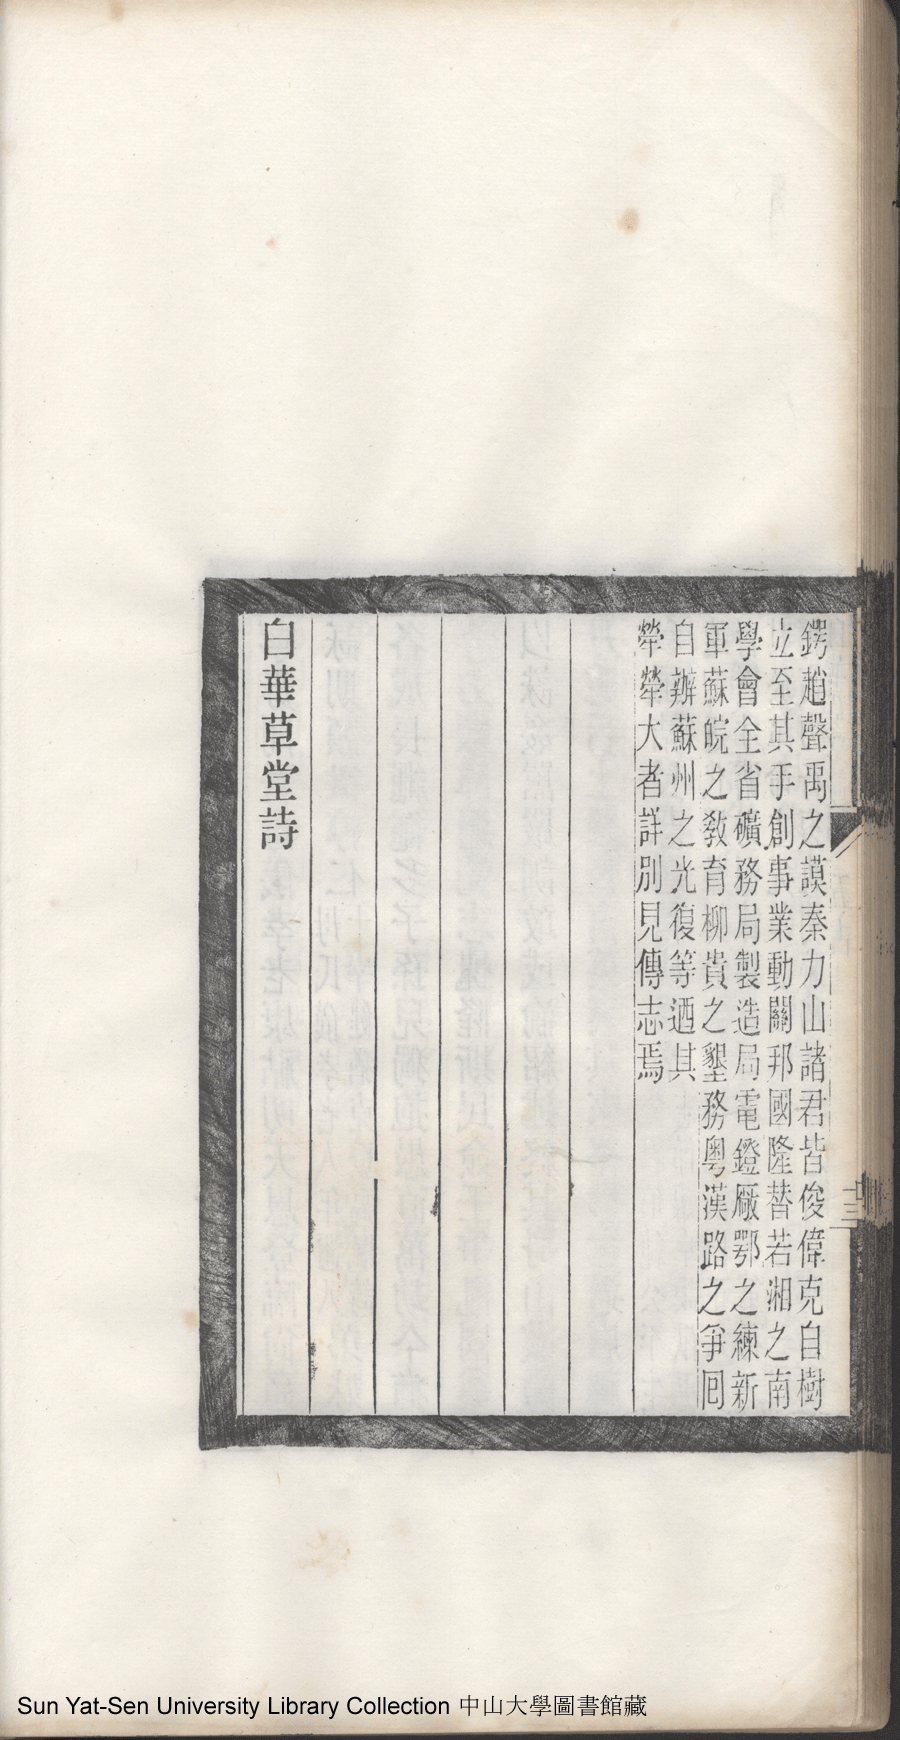 鍔趙聲禹之謨秦力山諸君皆俊偉克自樹
立至其手創事業動關邦國隆替若湘之南
學會全省礦務局製造局電鐙廠鄂之練新
軍蘇皖之敎育柳貴之墾務粵漢路之爭囘
自辦蘇州之光復等迺其
犖犖大者詳別見傳志焉
白華草堂詩
十三
Sun Yat-Sen University Library Collection 中山大學圖書館藏